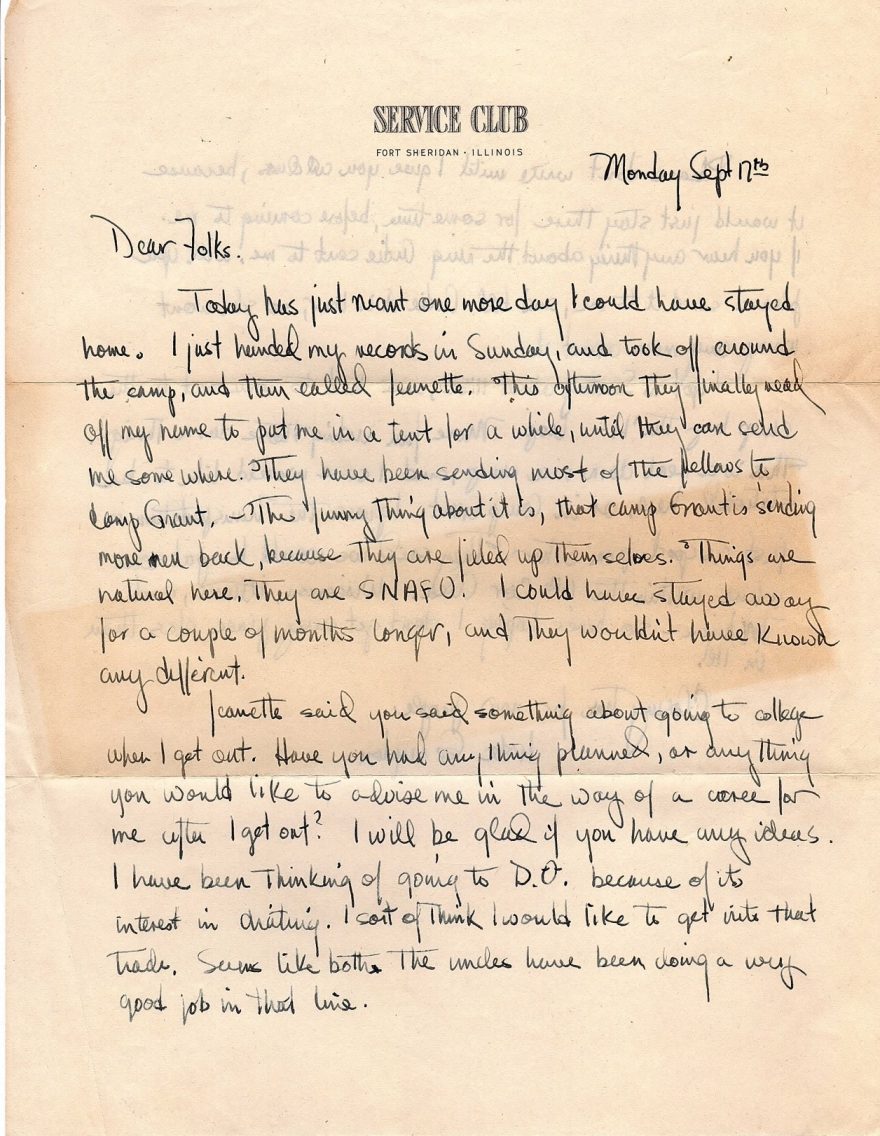 SERVICE CLUB
FORT SHERIDAN · ILLINOIS
Monday Sept 17th
Dear Folks.
Today has just ment one more day I could have stayed
home. I just handed my records in Sunday, and took off around
the camp, and then called Jeanette. This afternoon they finally read
off my name to put me in a tent for a while, until they can send
me some where. They have been sending most of the fellows to
Camp Grant. – The funny thing about it is, that camp Grant is sending
more men back, because they are filled up themselves. Things are
natural here. They are SNAFU. I could have stayed away
for a couple of months longer, and they wouldn't have known
any different.
Jeanette said you said something about going to college
when I get out. Have you had any thing planned, or any thing
you would like to advise me in the way of a career for
me after I get out? I will be glad if you have any ideas.
I have been thinking of going to D.U. because of its
interest in drafting. I sort of think I would like to get into that
trade. Seems like both the uncles have been doing a very
good job in that line.